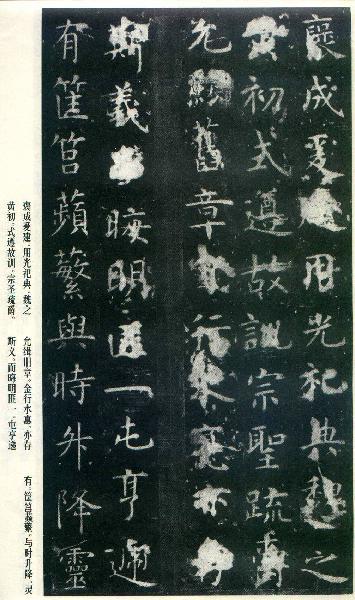 褒成爰建用光祀典魏之
黄初式遵故訓宗聖疏爵
允緝舊章金行水悳亦存
斯義而晦明匪一屯亨遞
有筐筥蘋蘩與時升降靈
褒成爰建,用光祀典。魏之
黄初,式遵故训,宗圣疏爵。
允缉旧章。金行水惠,亦存
斯义。而晦明匪一,屯亨递
有,筐筥蘋蘩,与时升降。灵